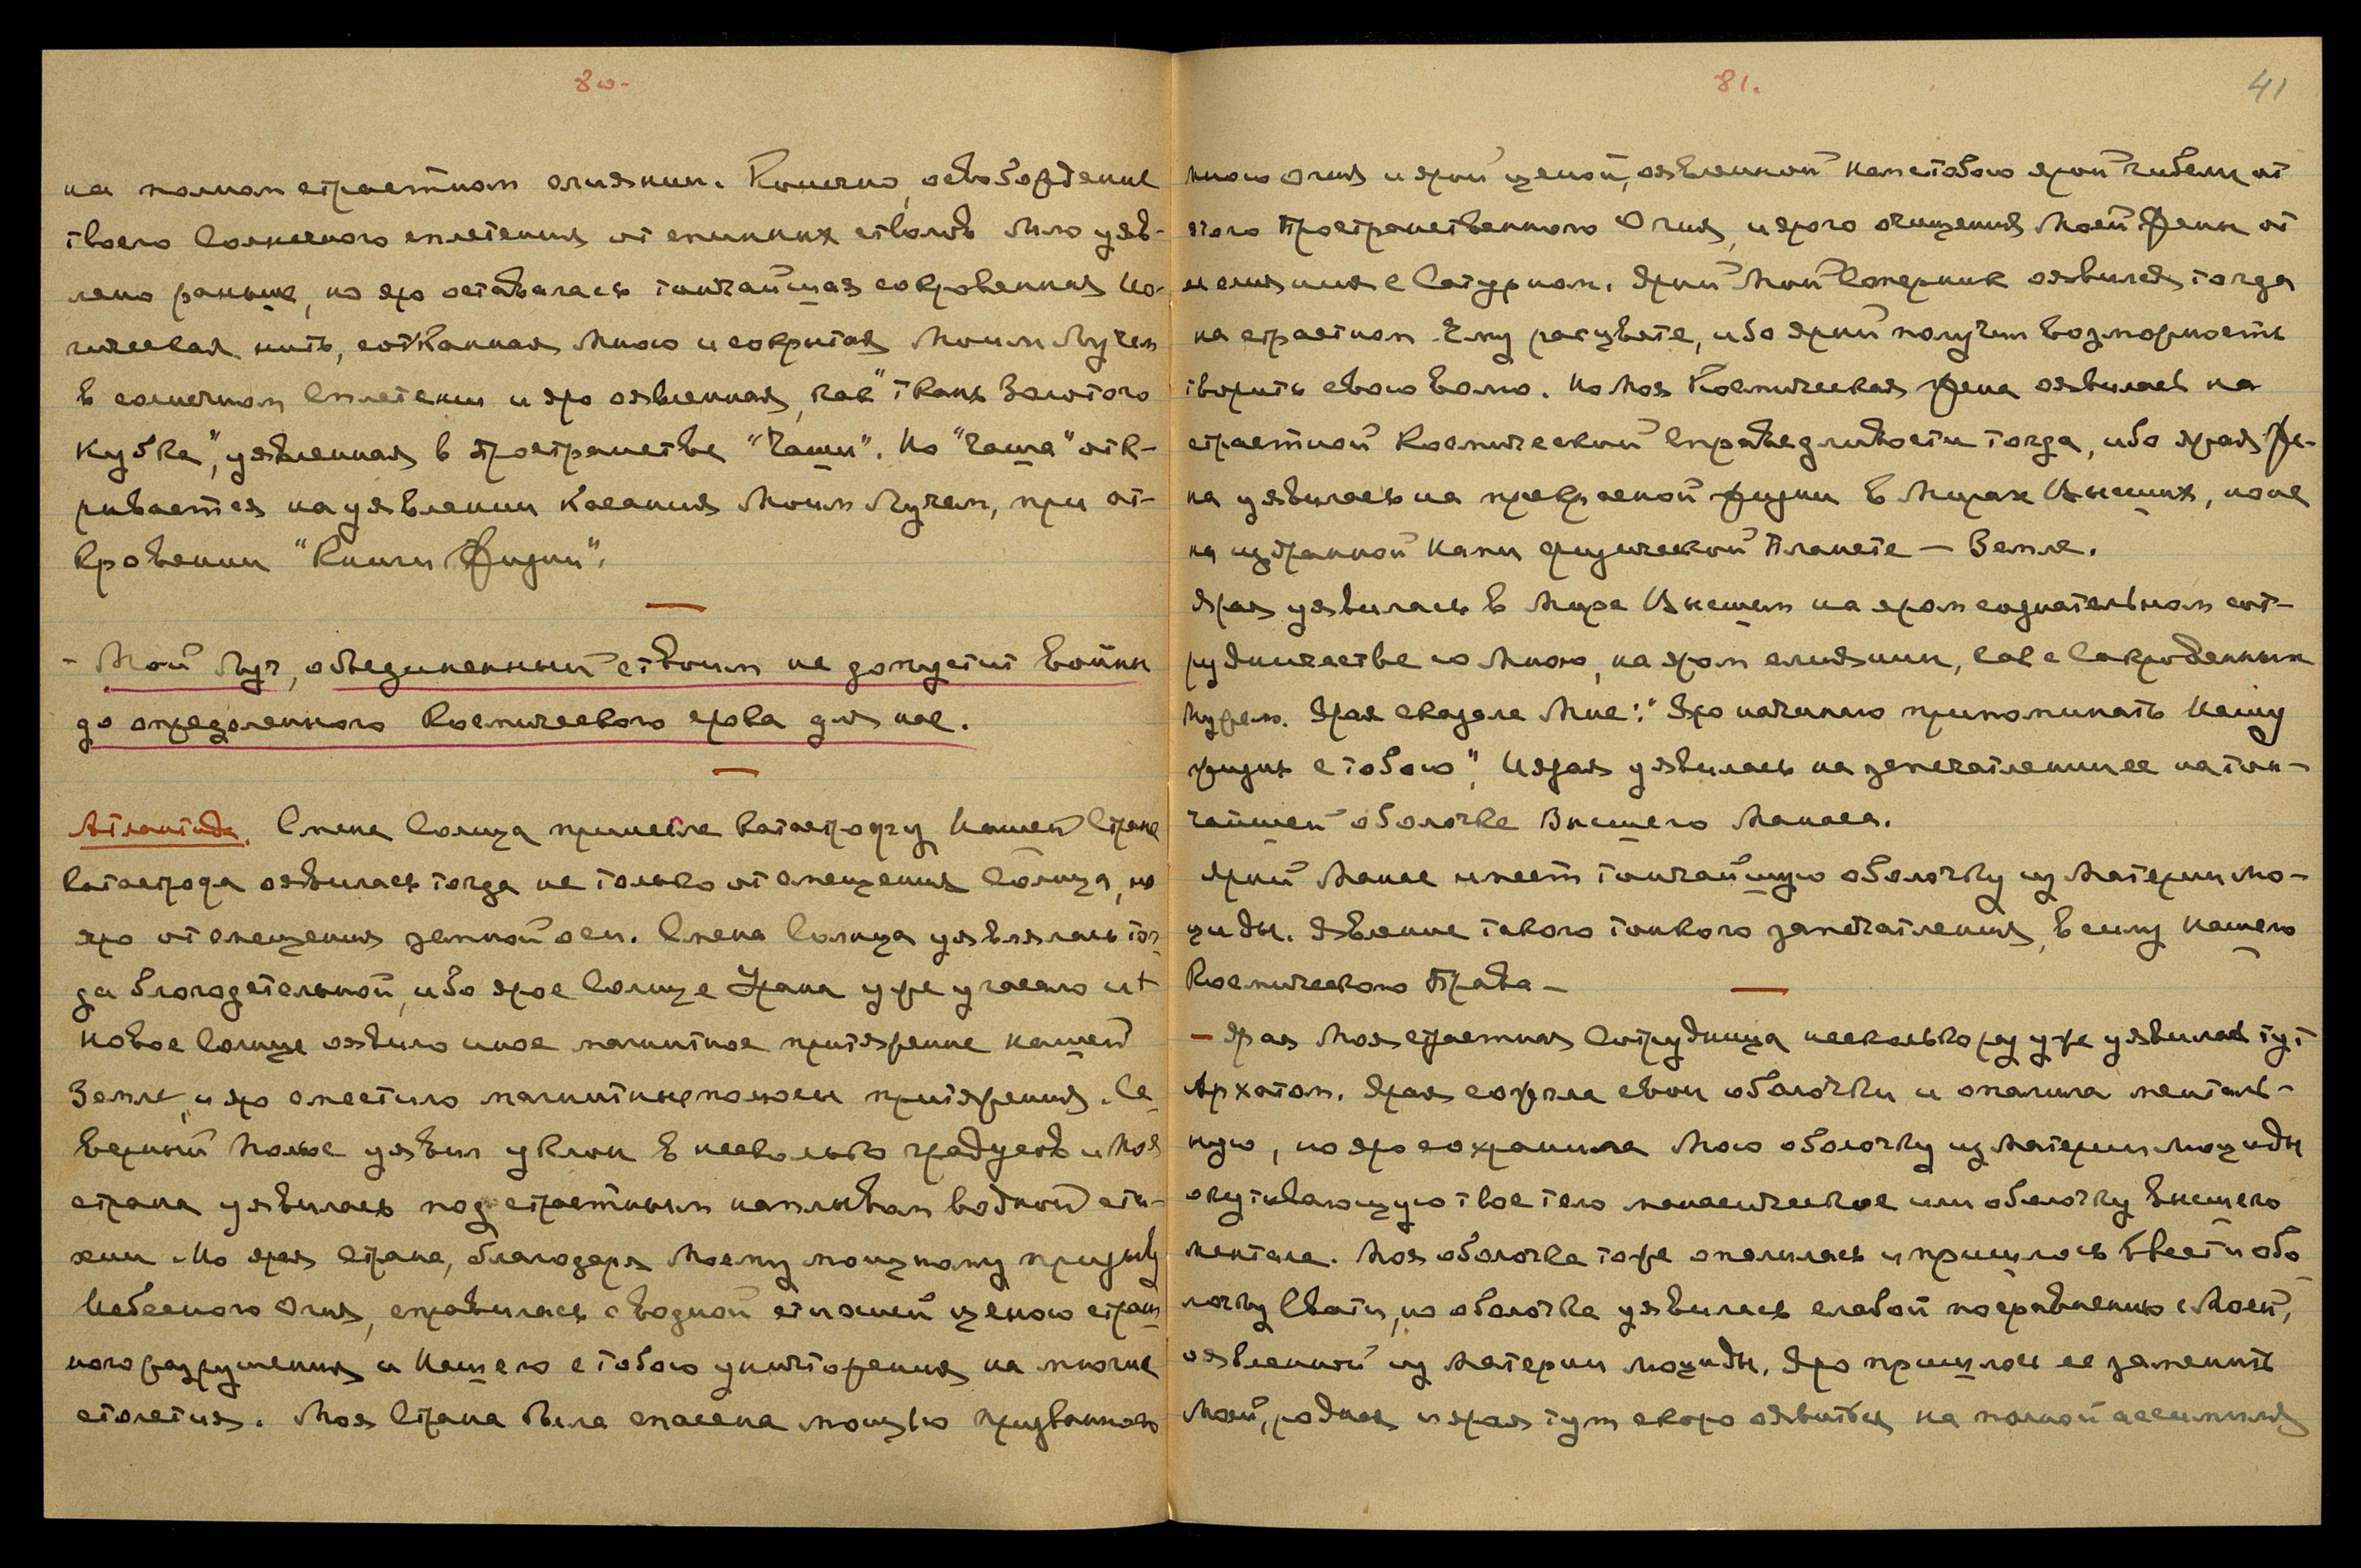 80-
на полном страстном слиянии. Конечно, освобождение
твоего Солнечного сплетения от спинных стволов было уяв-
лено раньше, но яро оставалась тончайшая сокровенная Ко-
гическая нить, сотканная Мною и сокрытая Моим Лучем
в солнечном Сплетении и яро оявленная, как "ткань Золотого
Кубка", уявленная в пространстве "Чаши". Но "Чаша" отк-
рывается на уявлении Касания Моим Лучем, при от-
кровении "Книги Жизни".
- Мой Луч, объединенный с твоим не допустит Войны
до определенного Космического срока для нас.
Атлантида. Смена Солнца принесла катастрофу Нашей Стране
Катастрофа оявилась тогда не только от смещения Солнца, но
яро от смещения земной оси. Смена Солнца уявлялась тог-
да благодетельной, ибо ярое Солнце Урана уже угасало и
новое Солнце оявило иное магнитное притяжение нашей
Земле, и яро сместило магнитные полюсы притяжения. Се-
верный Полюс уявил уклон в несколько градусов и Моя
страна уявилась под страстным наплывом водной сти-
хии. Но ярая Страна, благодаря Моему мощному призыву
Небесного Огня, справилась с водной стихией ценою страш-
ного разрушения и Нашего с тобою уничтожения на многие
столетия. Моя Страна была спасена мощью призванного
81.
41
Мною Огня и ярой ценой, оявленной Нам с тобою ярой гибели от
этого Пространственного Огня, и ярого очищения Моей Жены от
слияния с Сатурном. Ярый Мой Соперник оявился тогда
на страстном Ему расцвете, ибо ярый получил возможность
творить свою волю. Но Моя Космическая Жена оявилась на
страстной Космической Справедливости тогда, ибо ярая Же-
на уявилась на прекрасной жизни в Мирах Высших, но не
на избранной Нами физической Планете — Земле.
Ярая уявилась в Мире Высшем на яром сознательном сот-
рудничестве со Мною, на яром слиянии, как с Сокровенным
Мужем. Ярая сказала Мне: "Яро начинаю припоминать Нашу
жизнь с тобою", И ярая уявилась на запечатлении ее на тон-
чайшей оболочке Высшего Манаса.
Ярый Манас имеет тончайшую оболочку из Материи Мо-
циды. Явление такого тонкого запечатления, в силу Нашего
Космического Права —
— Ярая Моя страстная Сотрудница несколько раз уже уявилась тут
Архатом. Ярая сожгла свои оболочки и опалила менталь-
ную, но яро сохранила Мою оболочку из Материи Моциды
окутывающую твое тело манасическое или оболочку Высшего
ментала. Моя оболочка тоже опалилась и пришлось ввести обо-
лочку Свати, но оболочка уявилась слабой по сравнению с Моей,
оявленной из Материи Моциды. Яро пришлось ее заменить
Моей, родная и ярая тут скоро оявиться на полной ассимиля